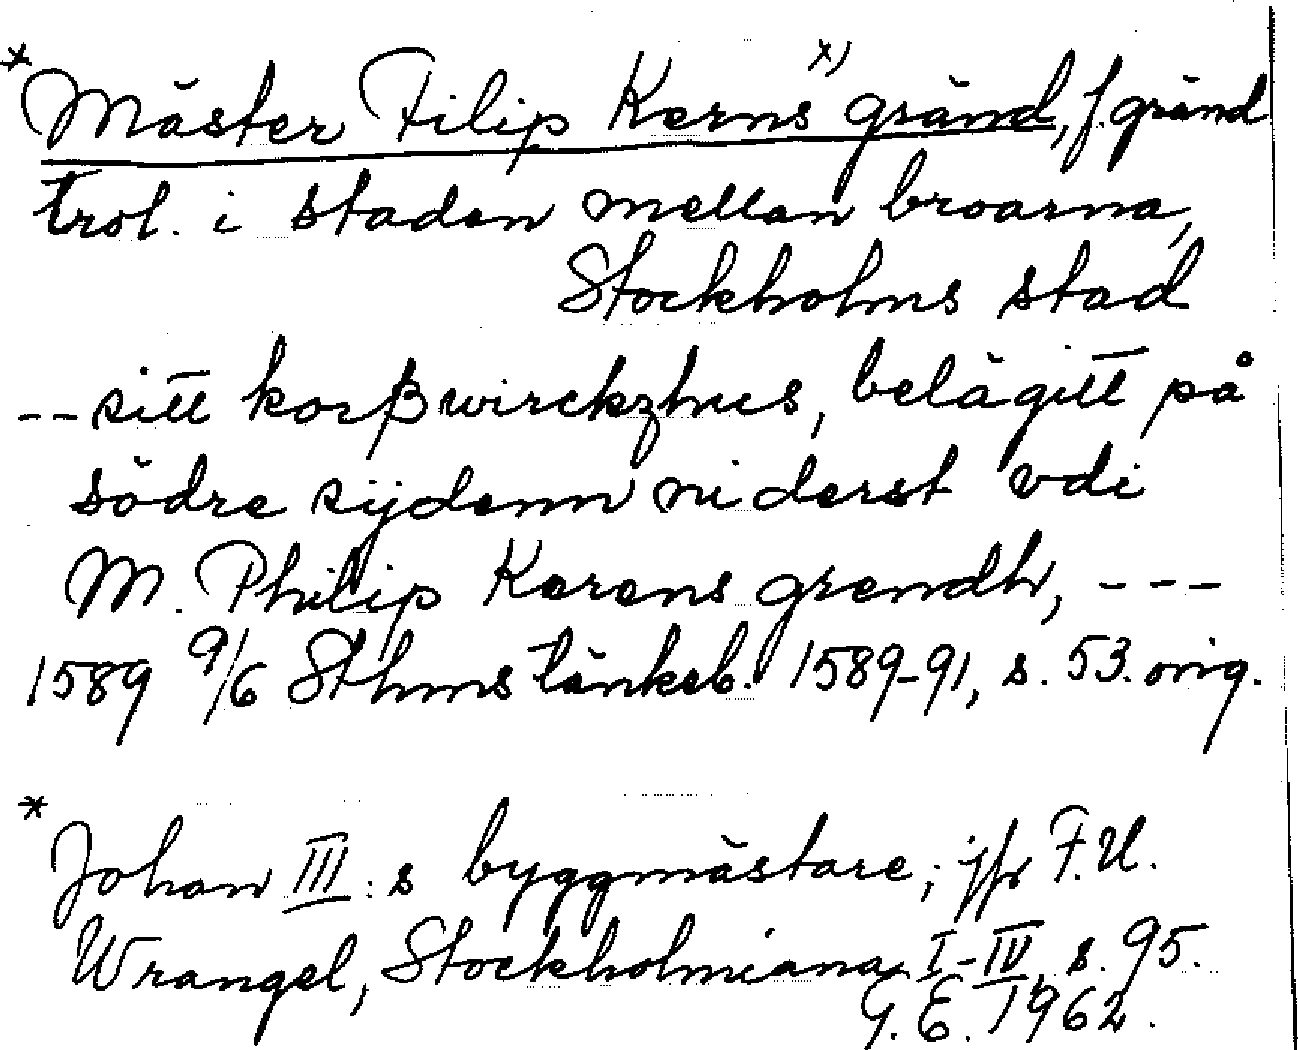 * Mäster Filip Kerns x) gränd, f. gränd
trol. i staden mellan broarna,
Stockholms stad
-- sitt korßwirckzhus, belägitt på
södre sijdenn niderst vdi
M. Philip Kerens grendh, ---
1589 9/6 Sthms tänkeb. 1589-91, s. 53. orig.
* Johan III:s byggmästare; jfr F.U.
Wrangel, Stockholmiana I-IV, s. 95.
G.E. 1962.